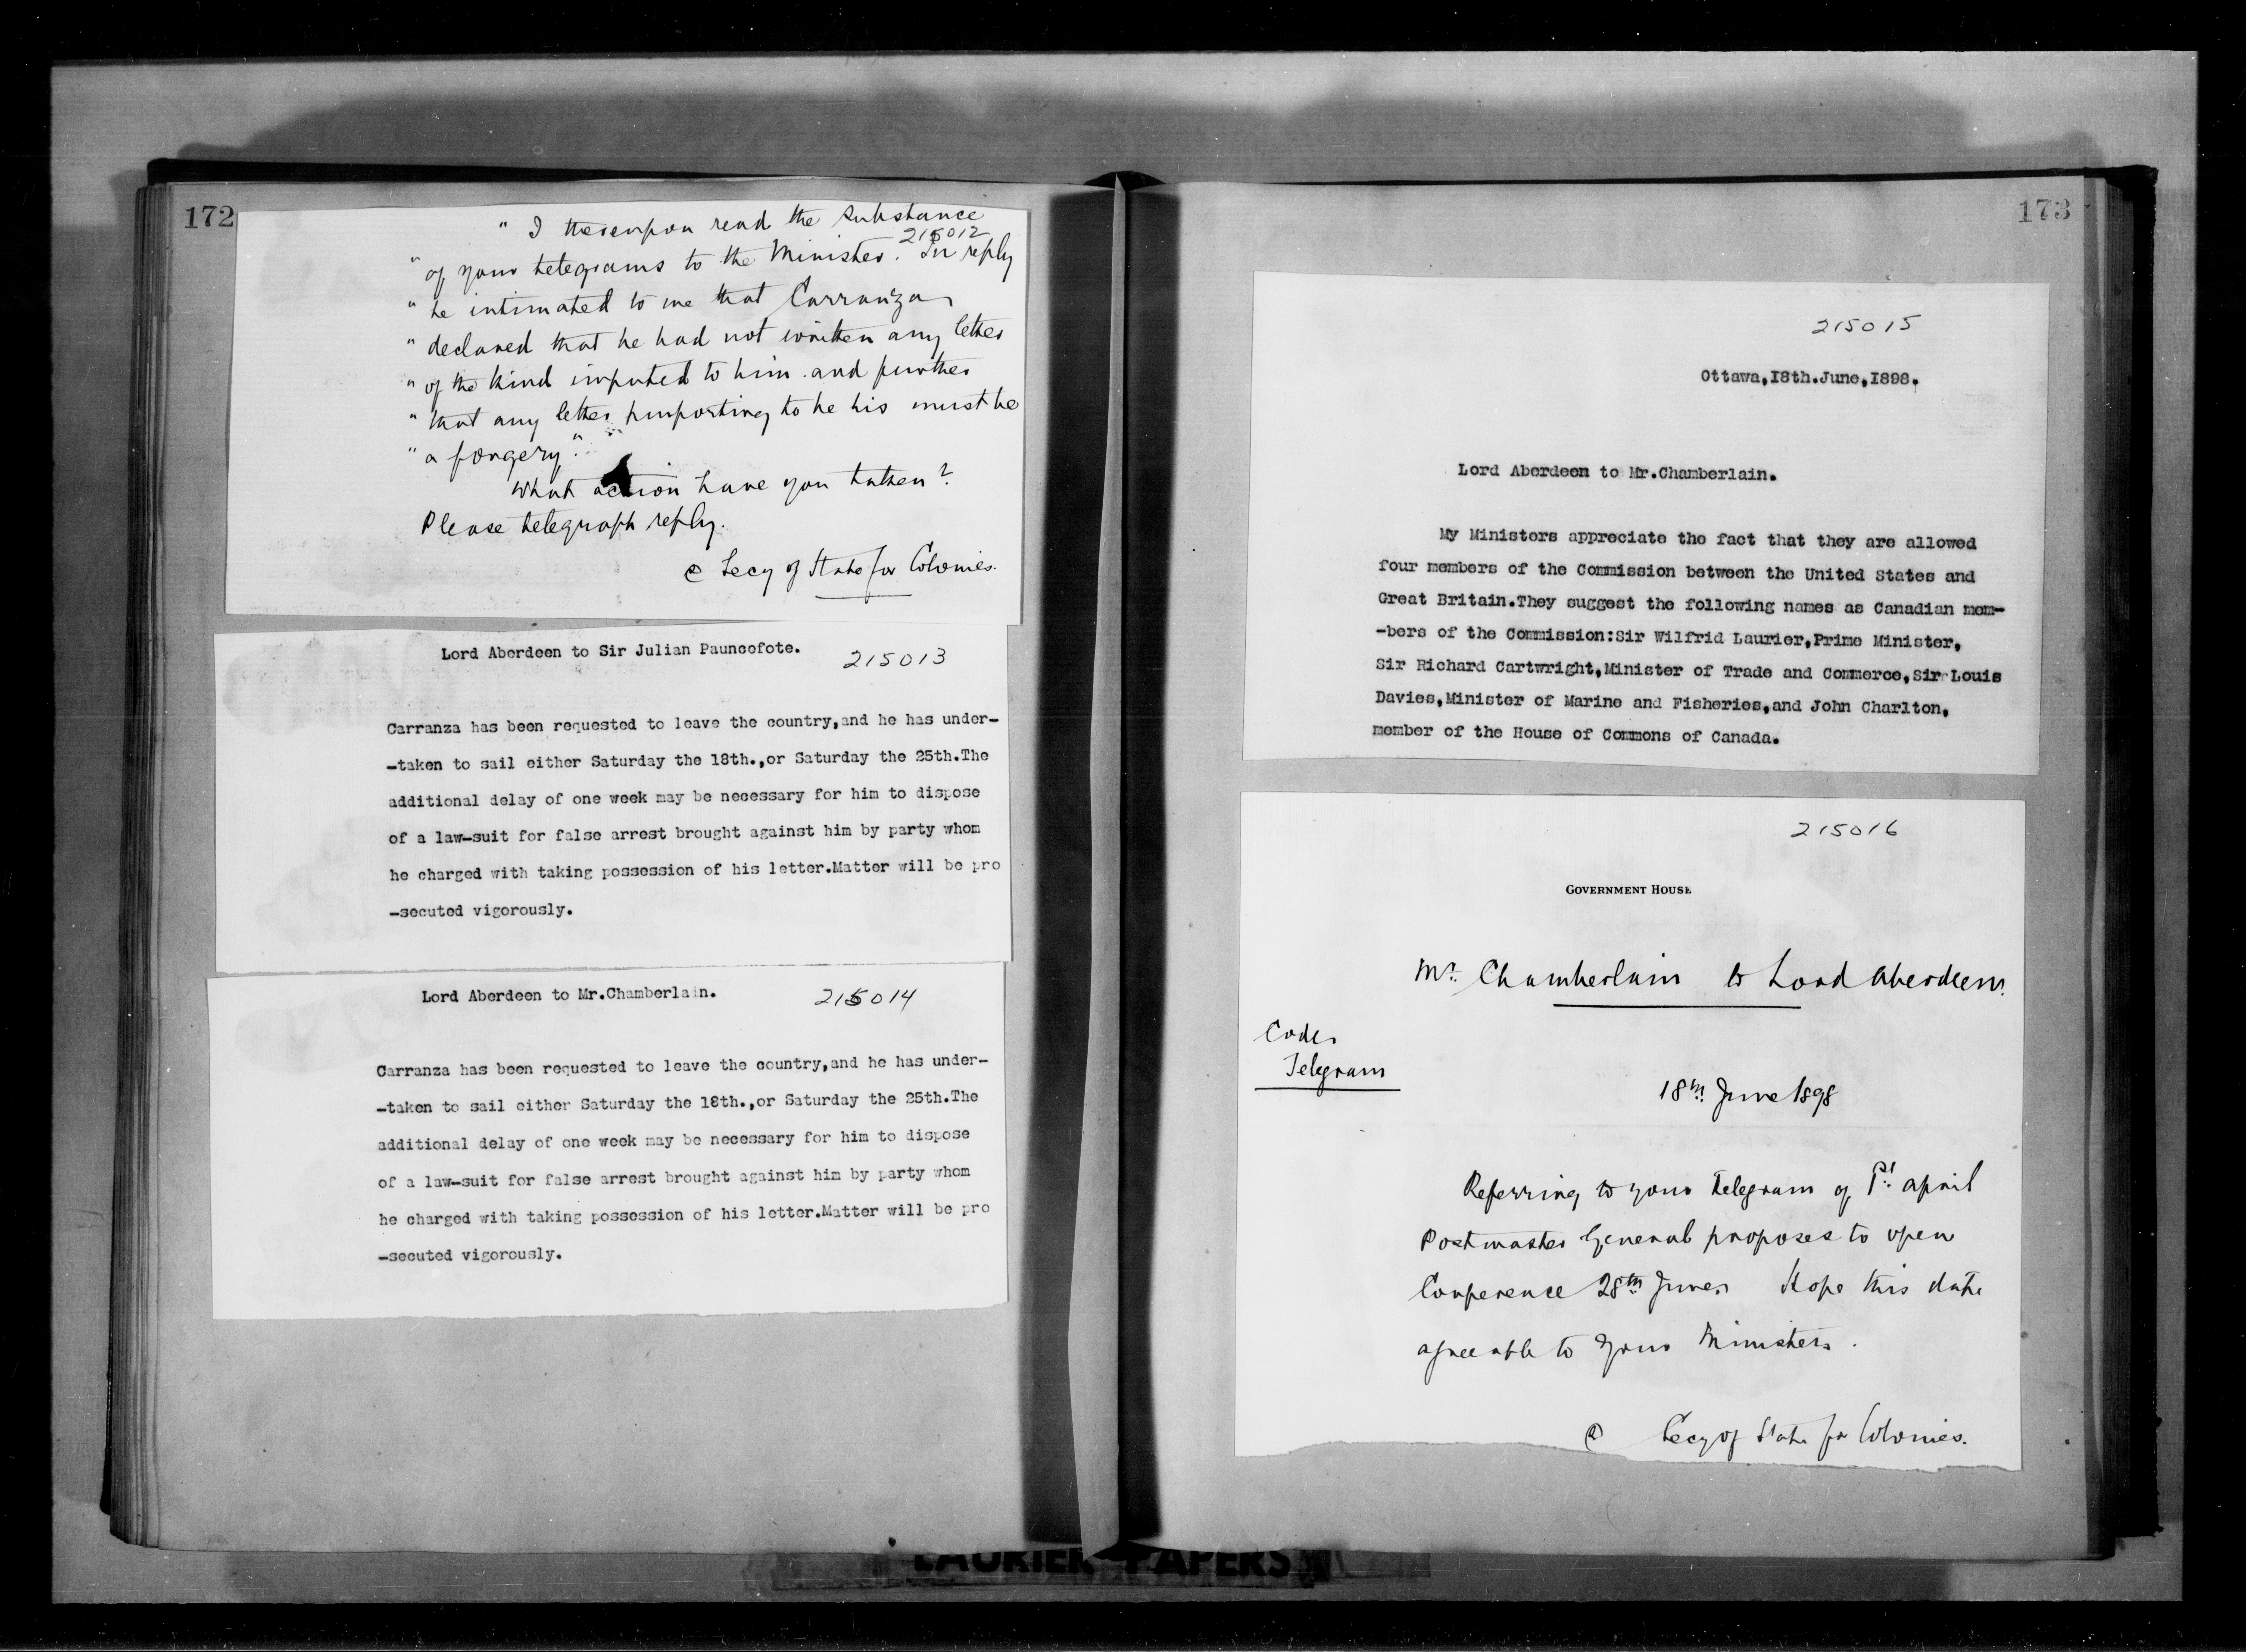 172
" I thereupon read the substance
215012
" of your telegrams to the Minister. In reply
" he intimated to me that Carranza
" declared that he had not written any letter
" of the kind imputed to him and further
" that any letter purporting to be his must be
" a forgery."
What action have you taken?
Please telegraph reply.
Secy of State for Colonies.
Lord Aberdeen to Sir Julian Pauncefote.
215013
Carranza has been requested to leave the country,and he has under-
-taken to sail either Saturday the 18th.,or Saturday the 25th.The
additional delay of one week may be necessary for him to dispose
of a law-suit for false arrest brought against him by party whom
he charged with taking possession of his letter.Matter will be pro
-secuted vigorously.
Lord Aberdeen to Mr.Chamberlain.
215014
Carranza has been requested to leave the country,and he has under-
-taken to sail either Saturday the 18th.,or Saturday the 25th.The
additional delay of one week may be necessary for him to dispose
of a law-suit for false arrest brought against him by party whom
he charged with taking possession of his letter.Matter will be pro
-secuted vigorously.
173
215015
Ottawa,I8th.June,I898.
Lord Aberdeen to Mr.Chamberlain.
My Ministers appreciate the fact that they are allowed
four members of the Commission between the United States and
Great Britain.They suggest the following names as Canadian mem-
-bers of the Commission:Sir Wilfrid Laurier,Prime Minister,
Sir Richard Cartwright,Minister of Trade and Commerce,Sir Louis
Davies,Minister of Marine and Fisheries,and John Charlton,
member of the House of Commons of Canada.
215016
GOVERNMENT HOUSE
Mr. Chamberlain to Lord Aberdeen.
Code
Telegram
18th June 1898
Referring to your Telegram of 1st April
Postmaster General proposes to open
Conference 28th June. Hope this date
agreeable to your Ministers.
Secy of State for Colonies.
LAURIER PAPERS